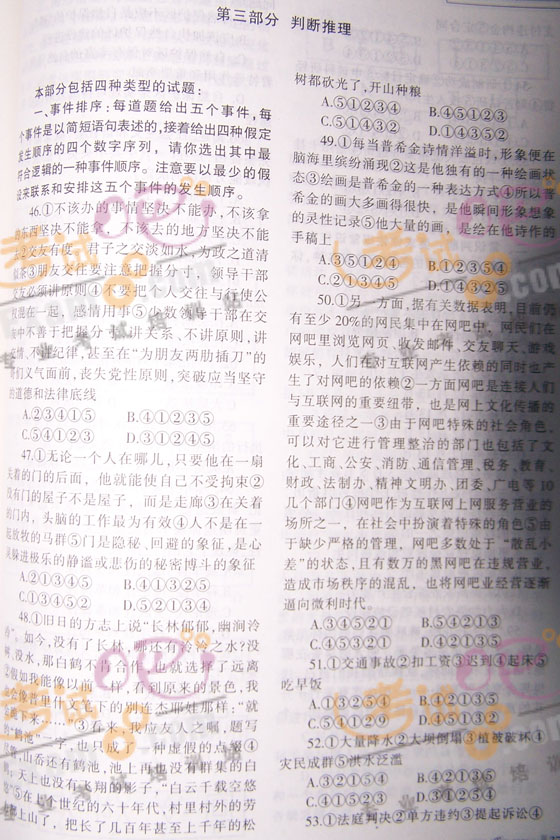 第三部分 判断推理
本部分包括四种类型的试题:
一、事件排序:每道题给出五个事件,每
个事件是以简短语句表述的,接着给出四种假定
发生顺序的四个数字序列,请你选出其中最
符合逻辑的一种事件顺序。注意要以最少的假
设来联系和安排这五个事件的发生顺序。
46.①不该办的事情坚决不能办,不该拿
的东西坚决不能拿,不该去的地方坚决不能
去②交友有度,君子之交淡如水,为政之道清
似茶③朋友交往要注意把握分寸,领导干部
交友必须讲原则④不要把个人交往与行使公
权混在一起,感情用事⑤少数领导干部在交
友中不善于把握分寸,讲关系、不讲原则,讲
交情、不讲纪律,甚至在“为朋友两肋插刀”的
哥们义气面前,丧失党性原则,突破应当坚守
的道德和法律底线
A.②③④①⑤ B.④①②③⑤
C.⑤④①②③ D.③①②④⑤
47.①无论一个人在哪儿,只要他在一扇
关着的门的后面,他就能使自己不受拘束②
没有门的屋子不是屋子,而是走廊③在关着
的门内,头脑的工作最为有效④人不是在一
起放牧的马群⑤门是隐秘、回避的象征,是心
灵躲进极乐的静谧或悲伤的秘密搏斗的象征
A.②①③④⑤ B.④①③②⑤
C.①③④⑤② D.⑤②①③④
48.①旧日的方志上说“长林郁郁,幽涧泠
泠”。如今,没有了长林,哪还有泠泠之水?没
树、没水,那白鹤不肯合作,也就选择了远离
②假如我能像以前一样,看到原来的景色,我
也会像普里什文笔下的别连杰耶娃那样:“就
③看来,我应友人之嘱,题写
的“鹤池”二字,也只成了一种虚假的点缀④
山岙还有鹤池,池上再也没有群集的白
鹤;天上也没有飞翔的影子,“白云千载空悠
悠”⑤在上世纪的六十年代,村里村外的劳
上山了,把长了几百年甚至上千年的松
树都砍光了,开山种粮
A.⑤①②③④ B.④⑤①②③
C.⑤③④②① D.①④③⑤②
49.①每当普希金诗情洋溢时,形象便在
脑海里缤纷涌现②这是他独有的一种绘画状
态③绘画是普希金的一种表达方式④所以普
希金的画大多画得很快,是他瞬间形象想象
的灵性记录⑤他大量的画,是绘在他诗作的
手稿上
A.③⑤①②④ B.①②④③⑤
C.⑤①③④② D.①④②③⑤
50.①另一方面,据有关数据表明,目前仍
有至少20%的网民集中在网吧中。网民们在
网吧里浏览网页、收发邮件,交友聊天、游戏
娱乐,人们在对互联网产生依赖的同时也产
生了对网吧的依赖②一方面网吧是连接人们
与互联网的重要纽带,也是网上文化传播的
重要途径之一③由于网吧特殊的社会角色,
可以对它进行管理整治的部门也包括了文
化、工商、公安、消防、通信管理、税务、教育、
财政、法制办、精神文明办、团委、广电等10
几个部门④网吧作为互联网上网服务营业的
场所之一,在社会中扮演着特殊的角色⑤由
于缺少严格的管理,网吧多数处于“散乱小
差”的状态,且有数万的黑网吧在违规营业,
造成市场秩序的混乱,也将网吧业经营逐渐
逼向微利时代。
A.③④⑤②① B.④②①③⑤
C.④⑤③②① D.④②①③⑤
51.①交通事故②扣工资③迟到④起床⑤
吃早饭
A.③②⑤④① B.④②①③⑤
D.④⑤①③②
52.①大量降水②大坝倒塌③植被破坏④
灾民成群⑤洪水泛滥
A.③②①⑤④ B.④②①③⑤
D.③①②⑤④
53.①法庭判决②单方违约③提起诉讼④